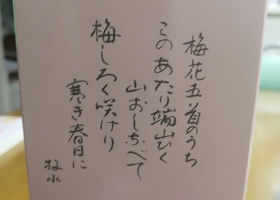 梅花五首のうち
このあたり端山ひく
山おしなべて
梅しろく咲けり
寒き春日に
牧水